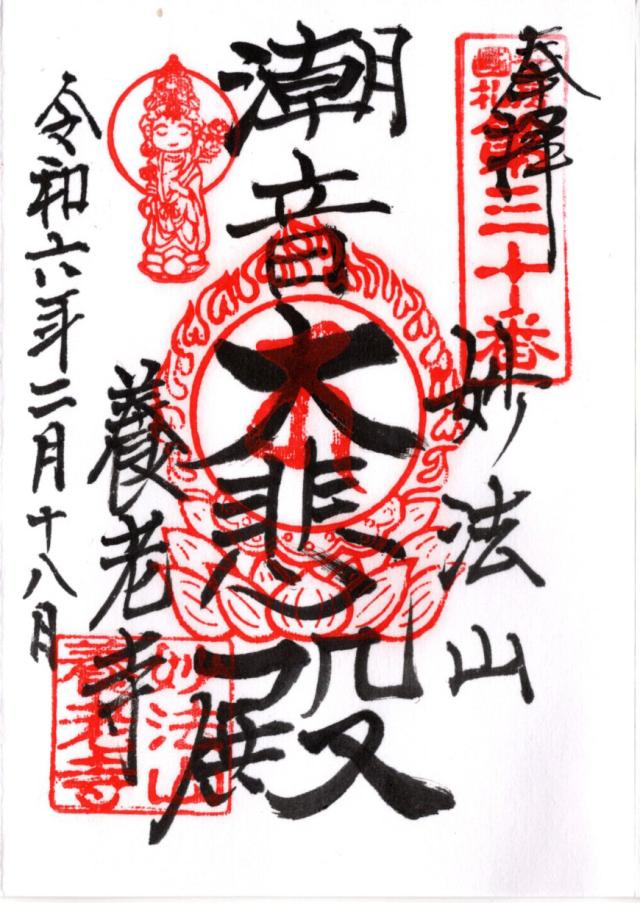 奉拝
安房
國札
第三十番
妙法山
潮音大悲殿
養老寺
令和六年二月十八日
妙法山
養老寺